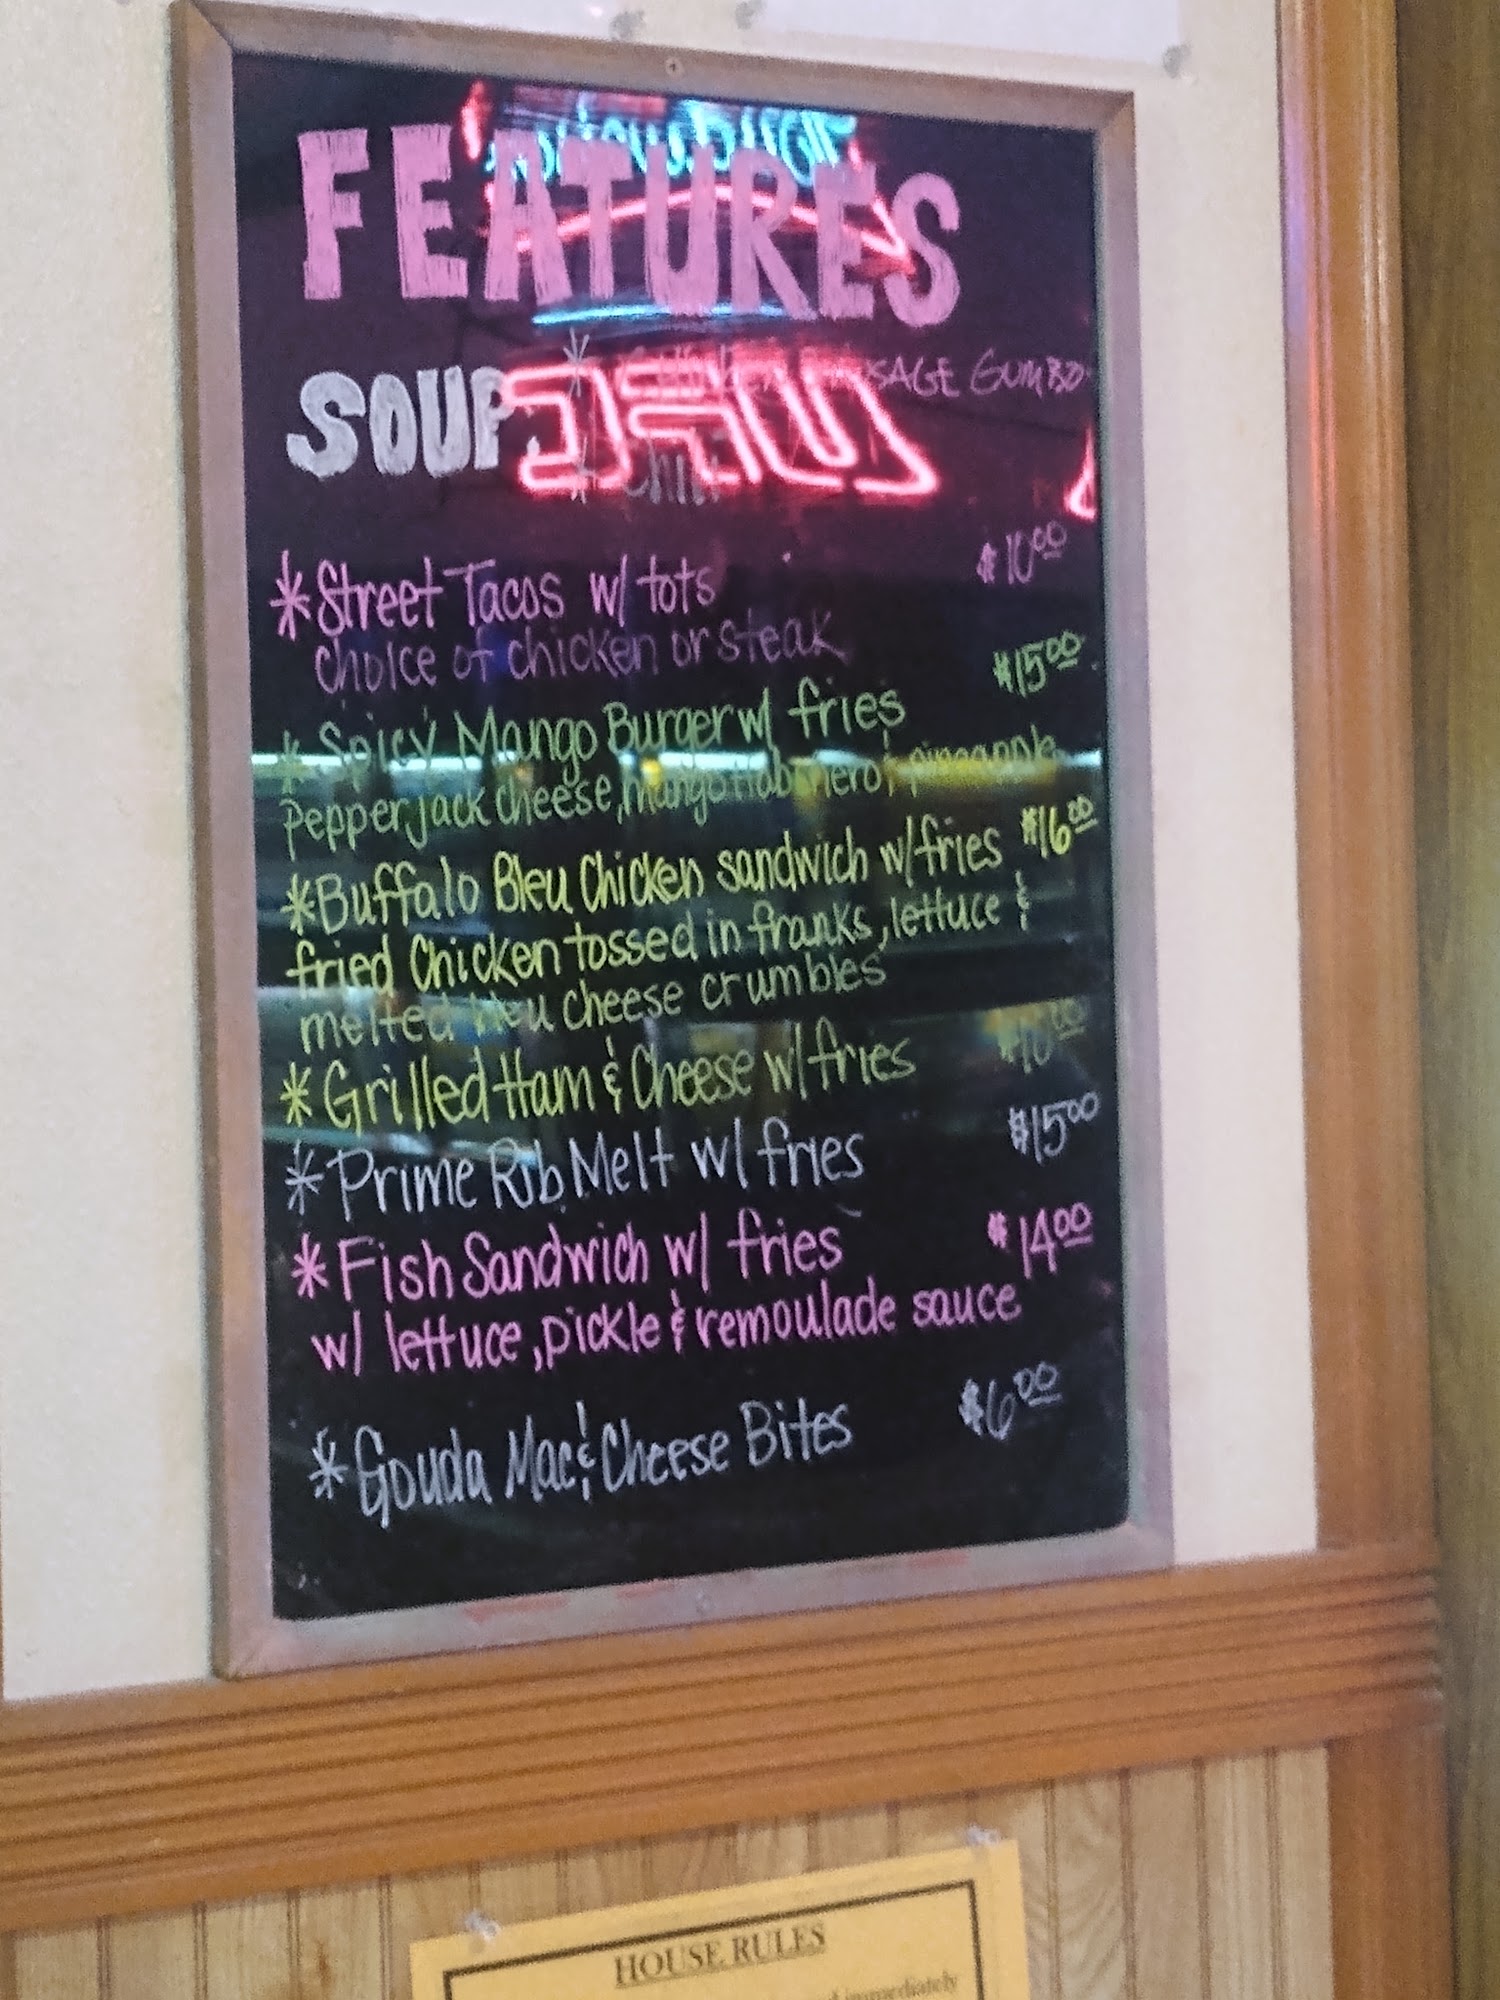 FEATURES
SOUP * Chicken & SAUSAGE GUMBO
* Chili
*Street Tacos w/ tots $10.00
choice of chicken or steak
*Spicy Mango Burger w/ fries $15.00
Pepper jack cheese, mango habenero & pineapple
*Buffalo Bleu Chicken sandwich w/fries $16.00
fried Chicken tossed in franks, lettuce &
melted bleu cheese crumbles
*Grilled Ham & Cheese w/fries $10.00
*Prime Rib Melt w/ fries $15.00
*Fish Sandwich w/ fries $14.00
w/ lettuce, pickle & remoulade sauce
*Gouda Mac & Cheese Bites $6.00
HOUSE RULES
immediately